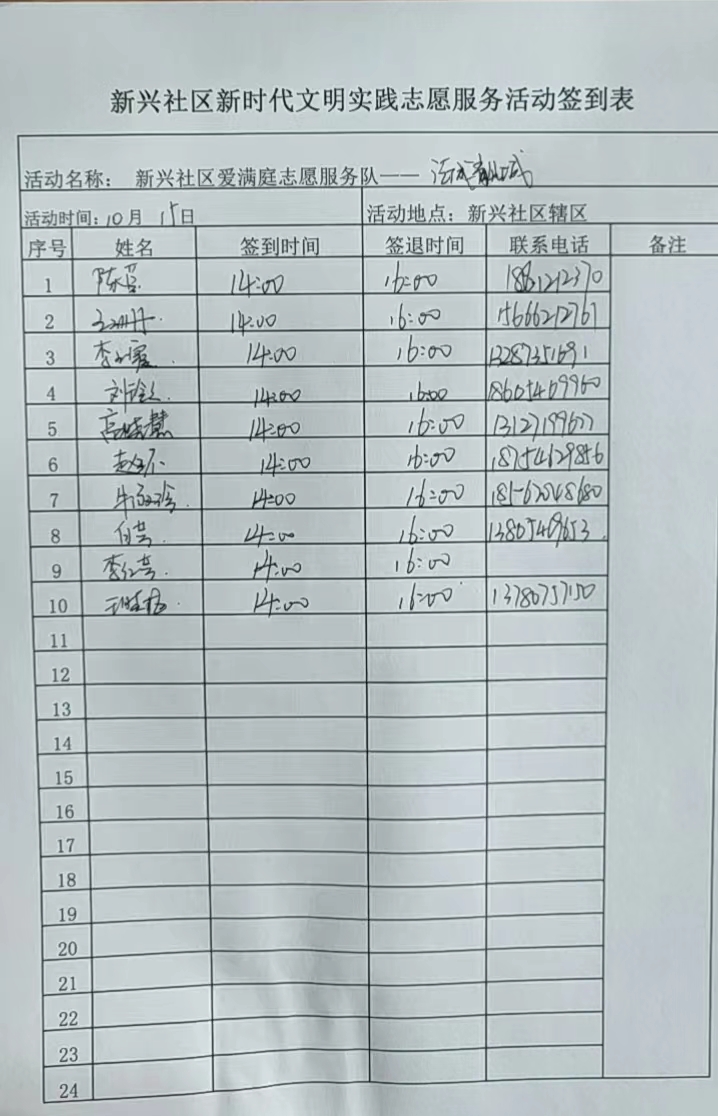 新兴社区新时代文明实践志愿服务活动签到表
活动名称： 新兴社区爱满庭志愿服务队——
活动时间：10月 15日 活动地点：新兴社区辖区
序号 姓名 签到时间 签退时间 联系电话 备注
1 14:00 16:00
2 14:00 16:00 15666212767
3 14:00 16:00 13287351691
4 14:00 16:00 18605469960
5 高晓慧 14:00 16:00 13127199677
6 14:00 16:00 18754629856
7 14:00 16:00 18562048680
8 14:00 16:00 13805469653
9 李红芸 14:00 16:00
10 14:00 16:00
11
12
13
14
15
16
17
18
19
20
21
22
23
24